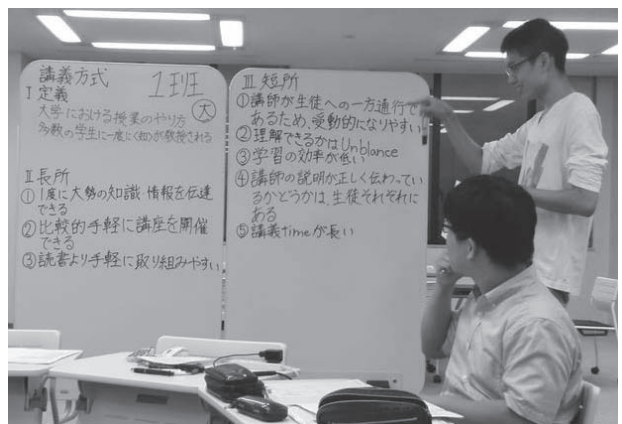 講義方式 1班
I 定義 大
大学における授業のやり方
多数の学生に一度に(知)が教授される
II 長所
① 1度に大勢の知識・情報を伝達
できる
② 比較的手軽に講座を開催
できる
③ 読書より手軽に取り組みやすい
III 短所
① 講師が生徒への一方通行で
あるため、受動的になりやすい
② 理解できるかはUnblance
③ 学習の効率が低い
④ 講師の説明が正しく伝わってい
るかどうかは、生徒それぞれに
ある
⑤ 講義timeが長い